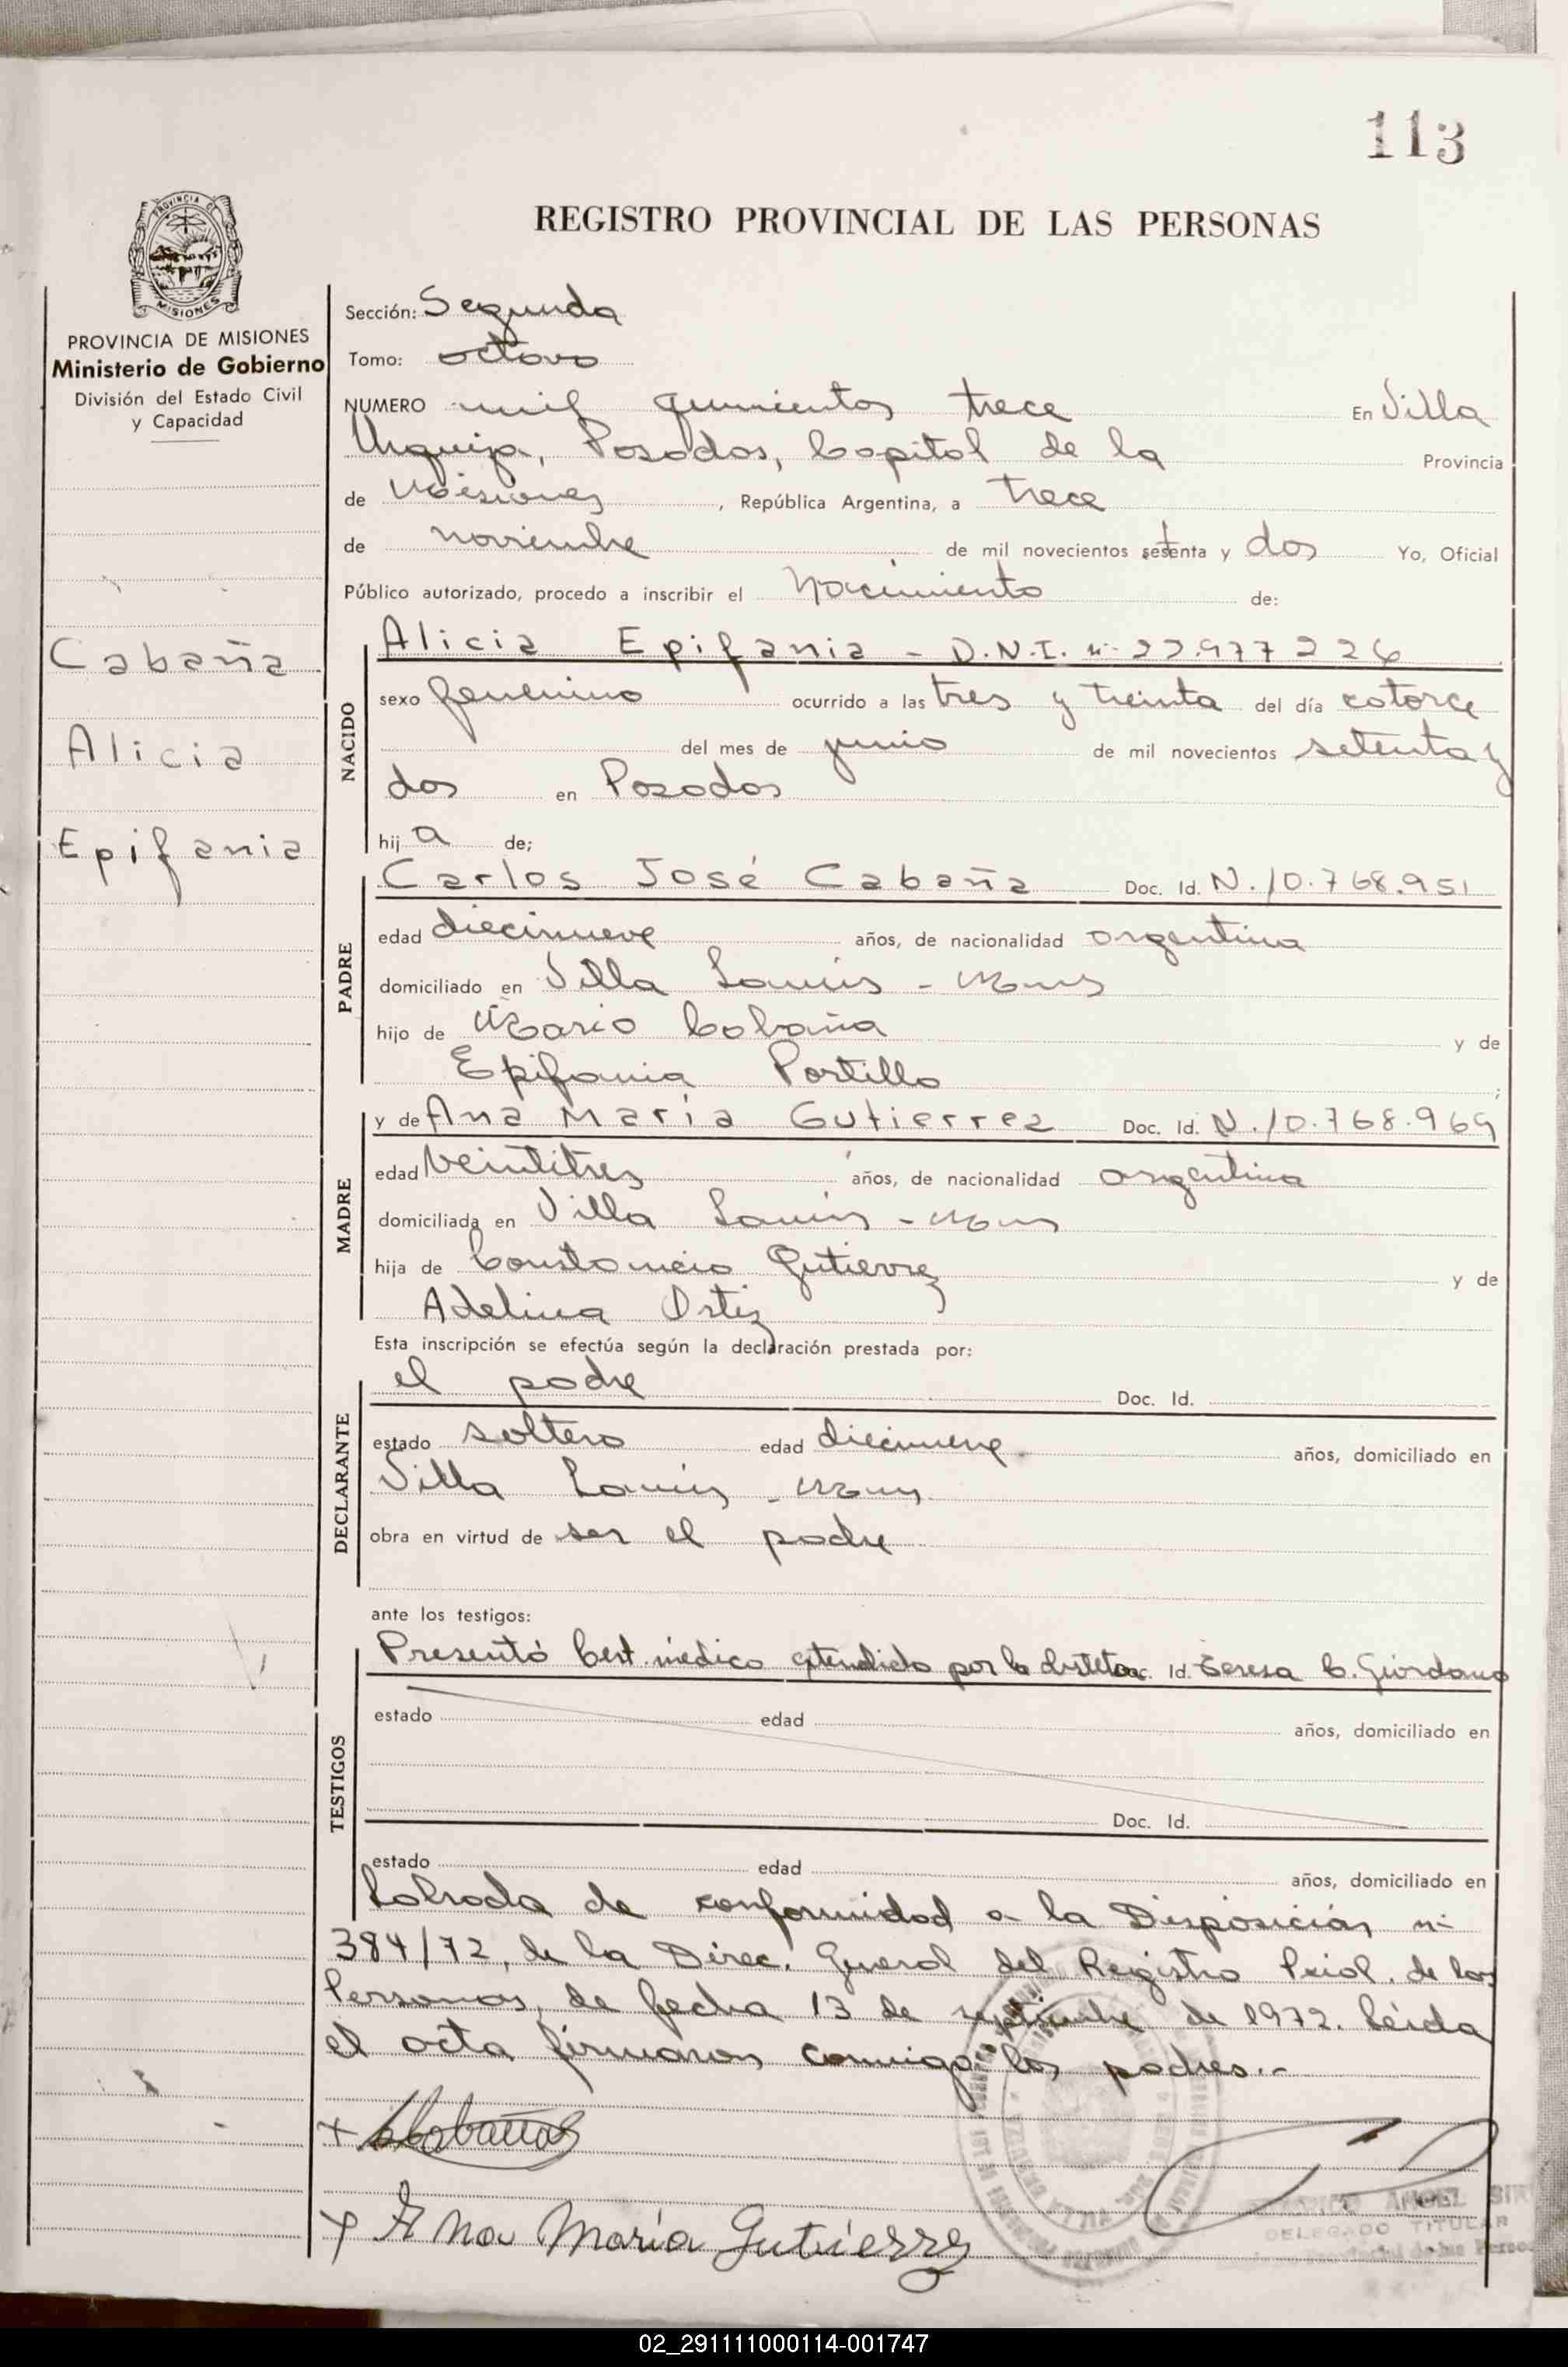 113
PROVINCIA DE
MISIONES
REGISTRO PROVINCIAL DE LAS PERSONAS
PROVINCIA DE MISIONES
Ministerio de Gobierno
División del Estado Civil
y Capacidad
Cabaña
Alicia
Epifania
Sección: Segunda
Tomo: octavo
NUMERO mil quinientos trece En Villa
Urquiza, Posadas, Capital de la Provincia
de Misiones, República Argentina, a trece
de noviembre de mil novecientos setenta y dos Yo, Oficial
Público autorizado, procedo a inscribir el Nacimiento de:
NACIDO
Alicia Epifania - D.N.I. nº 22.977226
sexo femenino ocurrido a las tres y treinta del día catorce
del mes de junio de mil novecientos setenta y
dos en Posadas
hija de;
PADRE
Carlos José Cabaña Doc. Id. N. 10.768.951
edad diecinueve años, de nacionalidad argentina
domiciliado en Villa Lanús - Mnes
hijo de Mario Cabaña y de
Epifania Portillo ;
MADRE
y de Ana María Gutierrez Doc. Id. N. 10.768.969
edad Veintitres años, de nacionalidad argentina
domiciliada en Villa Lanús - Mnes
hija de Constancio Gutierrez y de
Adelina Ortiz
Esta inscripción se efectúa según la declaración prestada por:
DECLARANTE
el padre Doc. Id.
estado soltero edad diecinueve años, domiciliado en
Villa Lanús - Mnes
obra en virtud de ser el padre
ante los testigos:
TESTIGOS
Presentó Cert. médico extendido por la obstetra Doc. Id. Teresa C. Giordano
estado edad años, domiciliado en
Doc. Id.
estado edad años, domiciliado en
Labrada de conformidad a la Disposición nº
384/72, de la Direc. General del Registro Pcial. de las
Personas, de fecha 13 de septiembre de 1972. Leída
el acta firmaron conmigo los padres.-
x Cabañas
x Ana María Gutiérrez
ANGEL
DELEGADO TITULAR
02_291111000114-001747